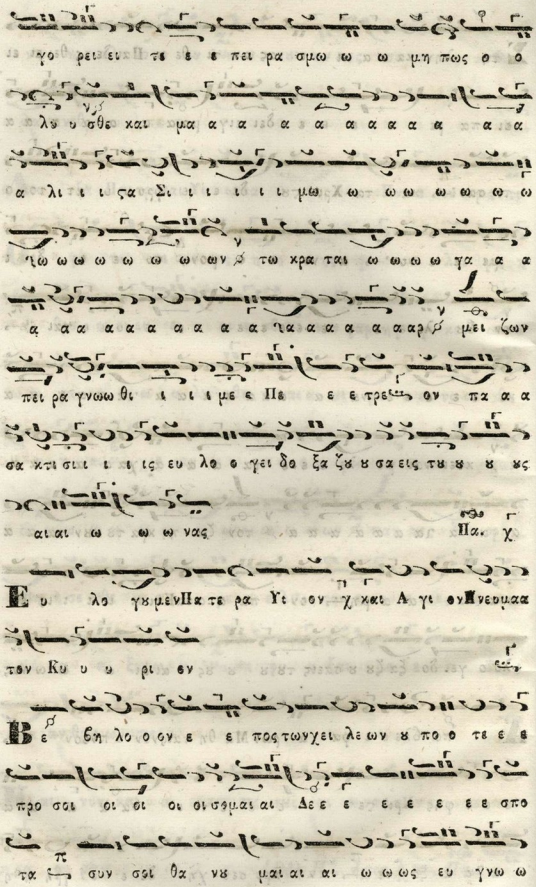 γο ρει ει τε ε ε πει ρα σμω ω ω μη πως ο ο
λυ υ σθε και μα α α α α α α α α α α α
α λι ι ι ϛα Σι ι ι ι ι ι μω ω ω ω ω ω ω ω
ω ω ω ω ω ω ων τω κρα ται ω ω ω ω γα α α
α α α α α α α α α α α α α α α α αρ μει ζων
πει ρα γνω ω θι ι ι ι με ε Πε ε ε τρε ον πα α α
σα κτι σι ι ι ι ις ευ λο ο γει δο ξα ζȣ ȣ σα εις τȣ ȣ ȣ ȣς
αι αι ω ω ω νας Πα. χ
Ε υ λο γȣ μεν Πα τε ρα Υι ον χ και Α γι ον Πνευμα α
τον Κυ υ υ ρι ον
Β ε βη λο ο ον ε ε πος των χει λε ων ȣ πο ο τε ε ε
προ σοι οι οι οι οι σομαι αι Δε ε ε ε ε ε ε ε ε σπο
τα π συν σοι θα νȣ μαι αι αι ω ω ως ευ γνω ω